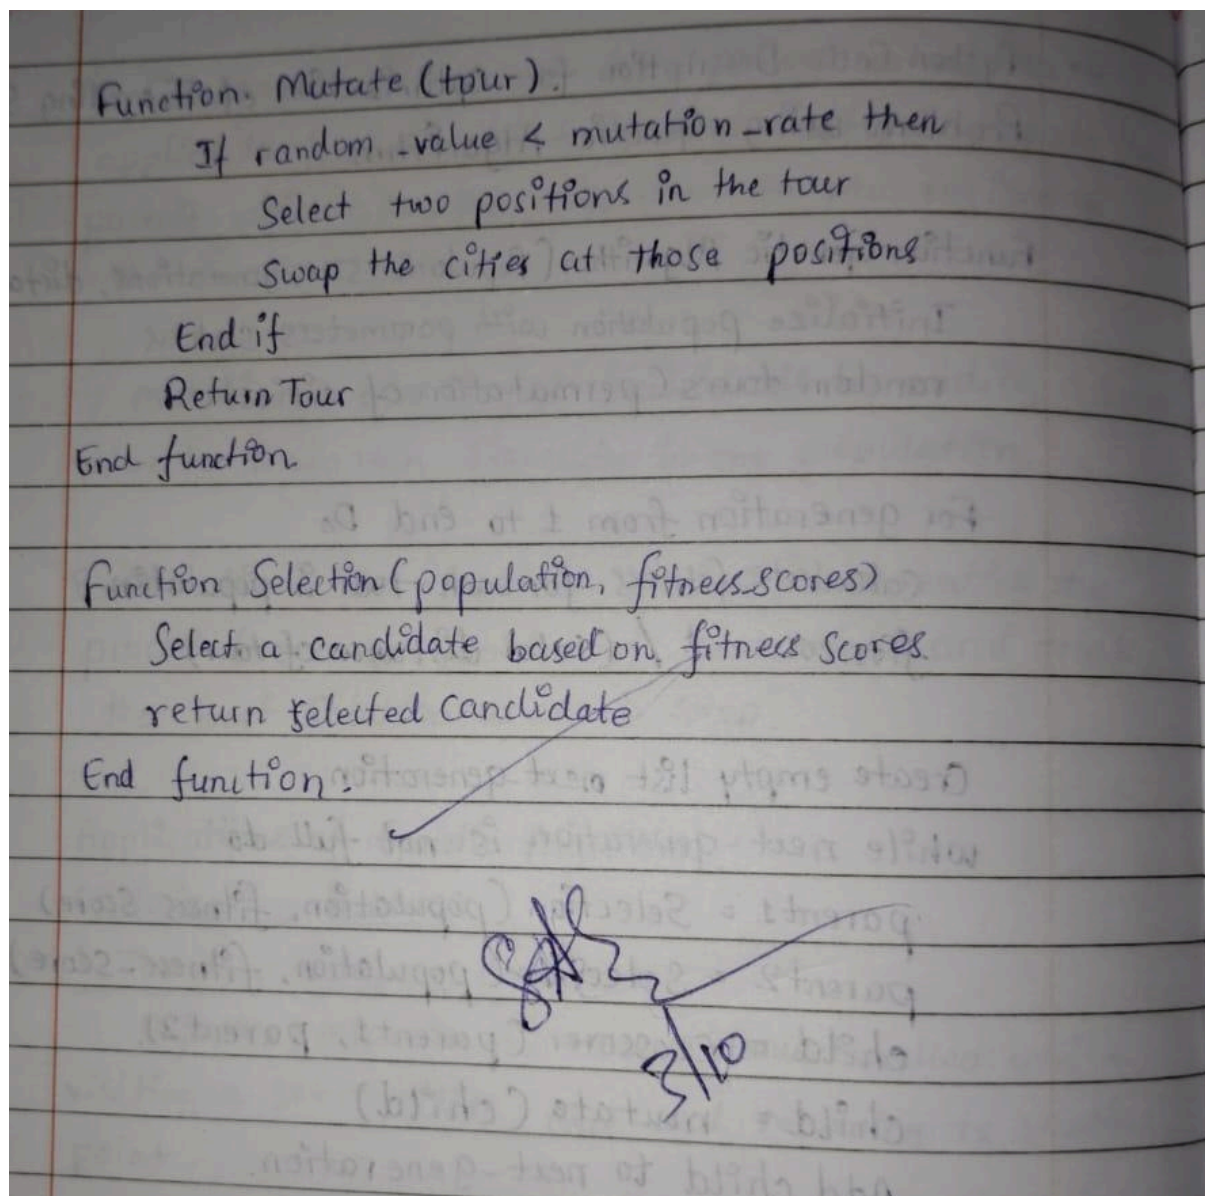 Function. Mutate (tour).
If random_value < mutation_rate then
Select two positions in the tour
Swap the cities at those positions
End if
Return Tour
End function.
Function Selection (population, fitness_scores)
Select a candidate based on fitness scores.
return selected candidate
End function.
3/10